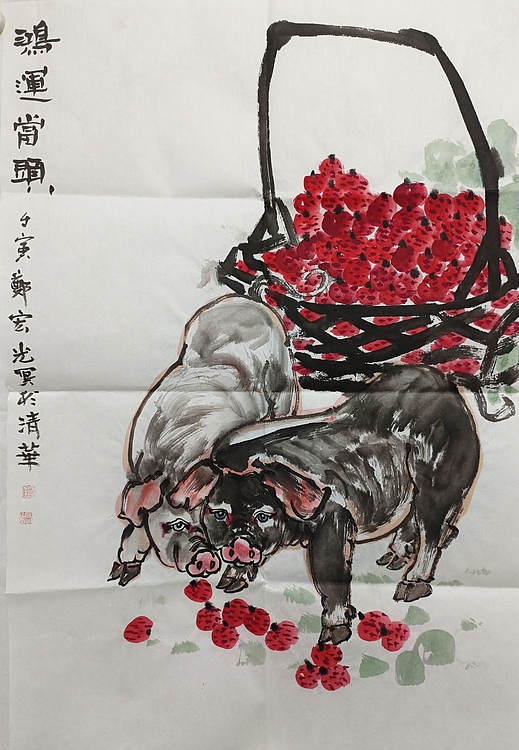 鴻運當頭
壬寅鄭宏光寫於清華